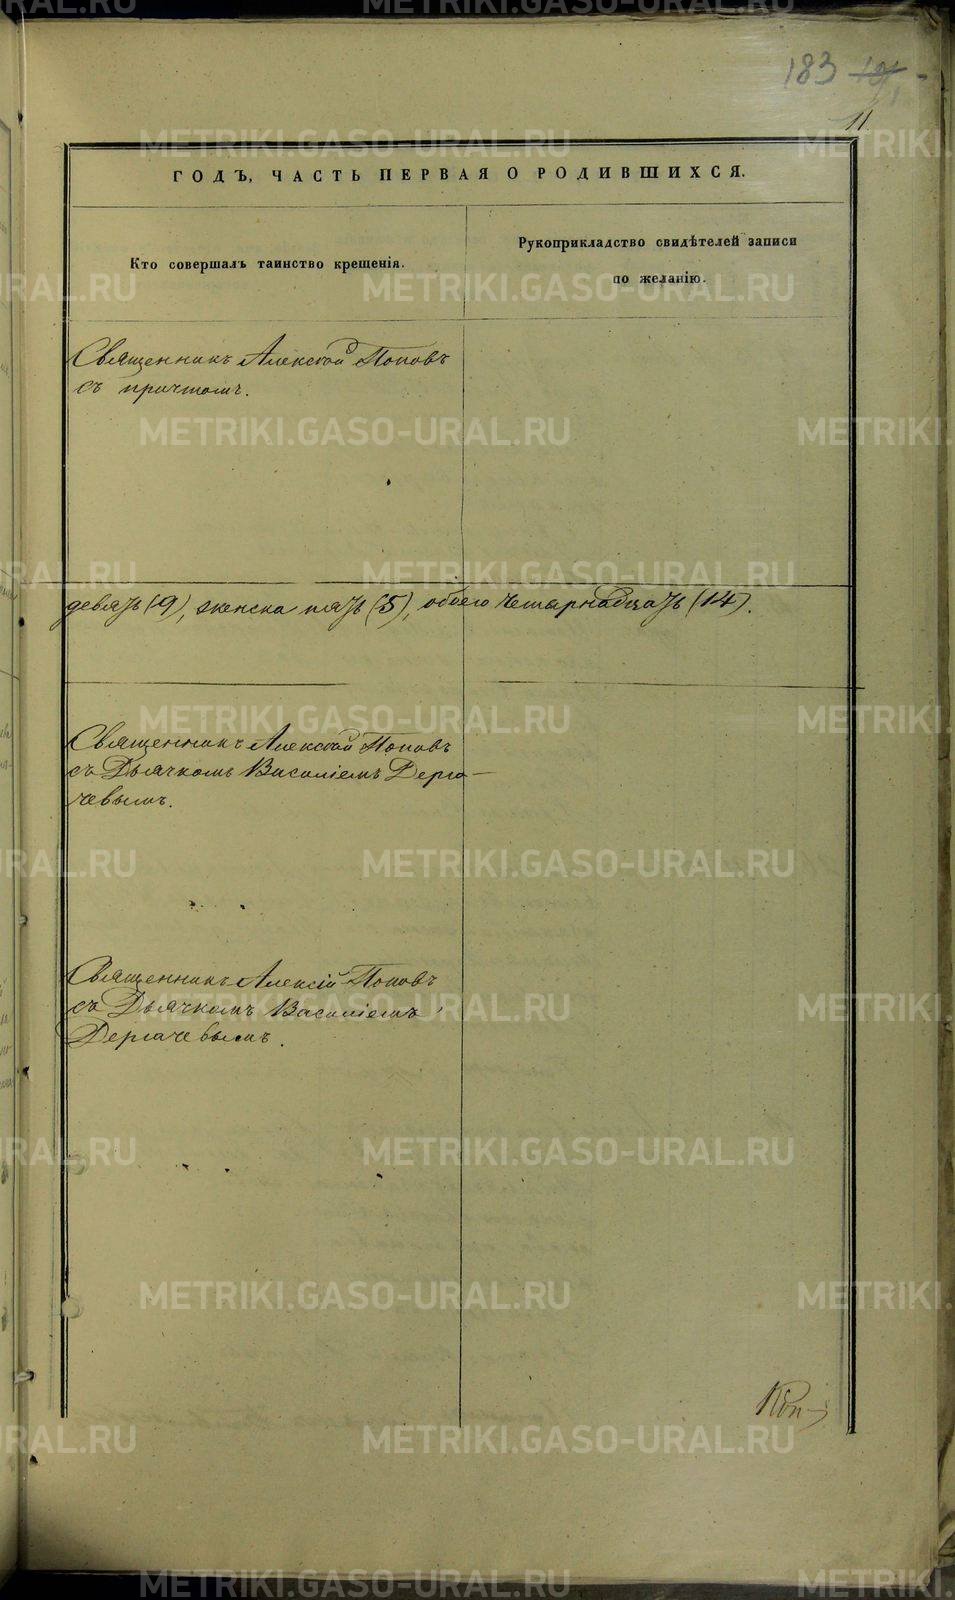 183
11
ГОДЪ, ЧАСТЬ ПЕРВАЯ О РОДИВШИХСЯ.
Кто совершалъ таинство крещенія.
Рукоприкладство свидѣтелей записи
по желанію.
Священникъ Алексѣй Поповъ
съ причтомъ.
девять (9), женска пять (5), обоего четырнадцать (14).
Священникъ Алексѣй Поповъ
съ Дьячкомъ Василіемъ Дерга-
чевымъ.
Священникъ Алексій Поповъ
съ Дьячкомъ Василіемъ
Дергачевымъ.
METRIKI.GASO-URAL.RU